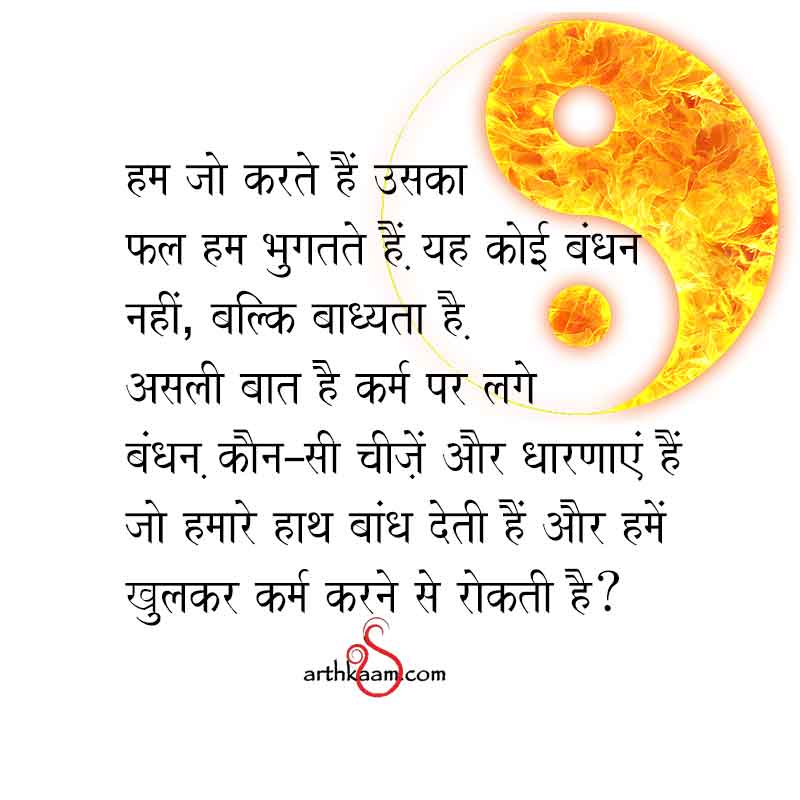 हम जो करते हैं उसका
फल हम भुगतते हैं. यह कोई बंधन
नहीं, बल्कि बाध्यता है.
असली बात है कर्म पर लगे
बंधन. कौन-सी चीज़ें और धारणाएं हैं
जो हमारे हाथ बांध देती हैं और हमें
खुलकर कर्म करने से रोकती है?
arthkaam.com